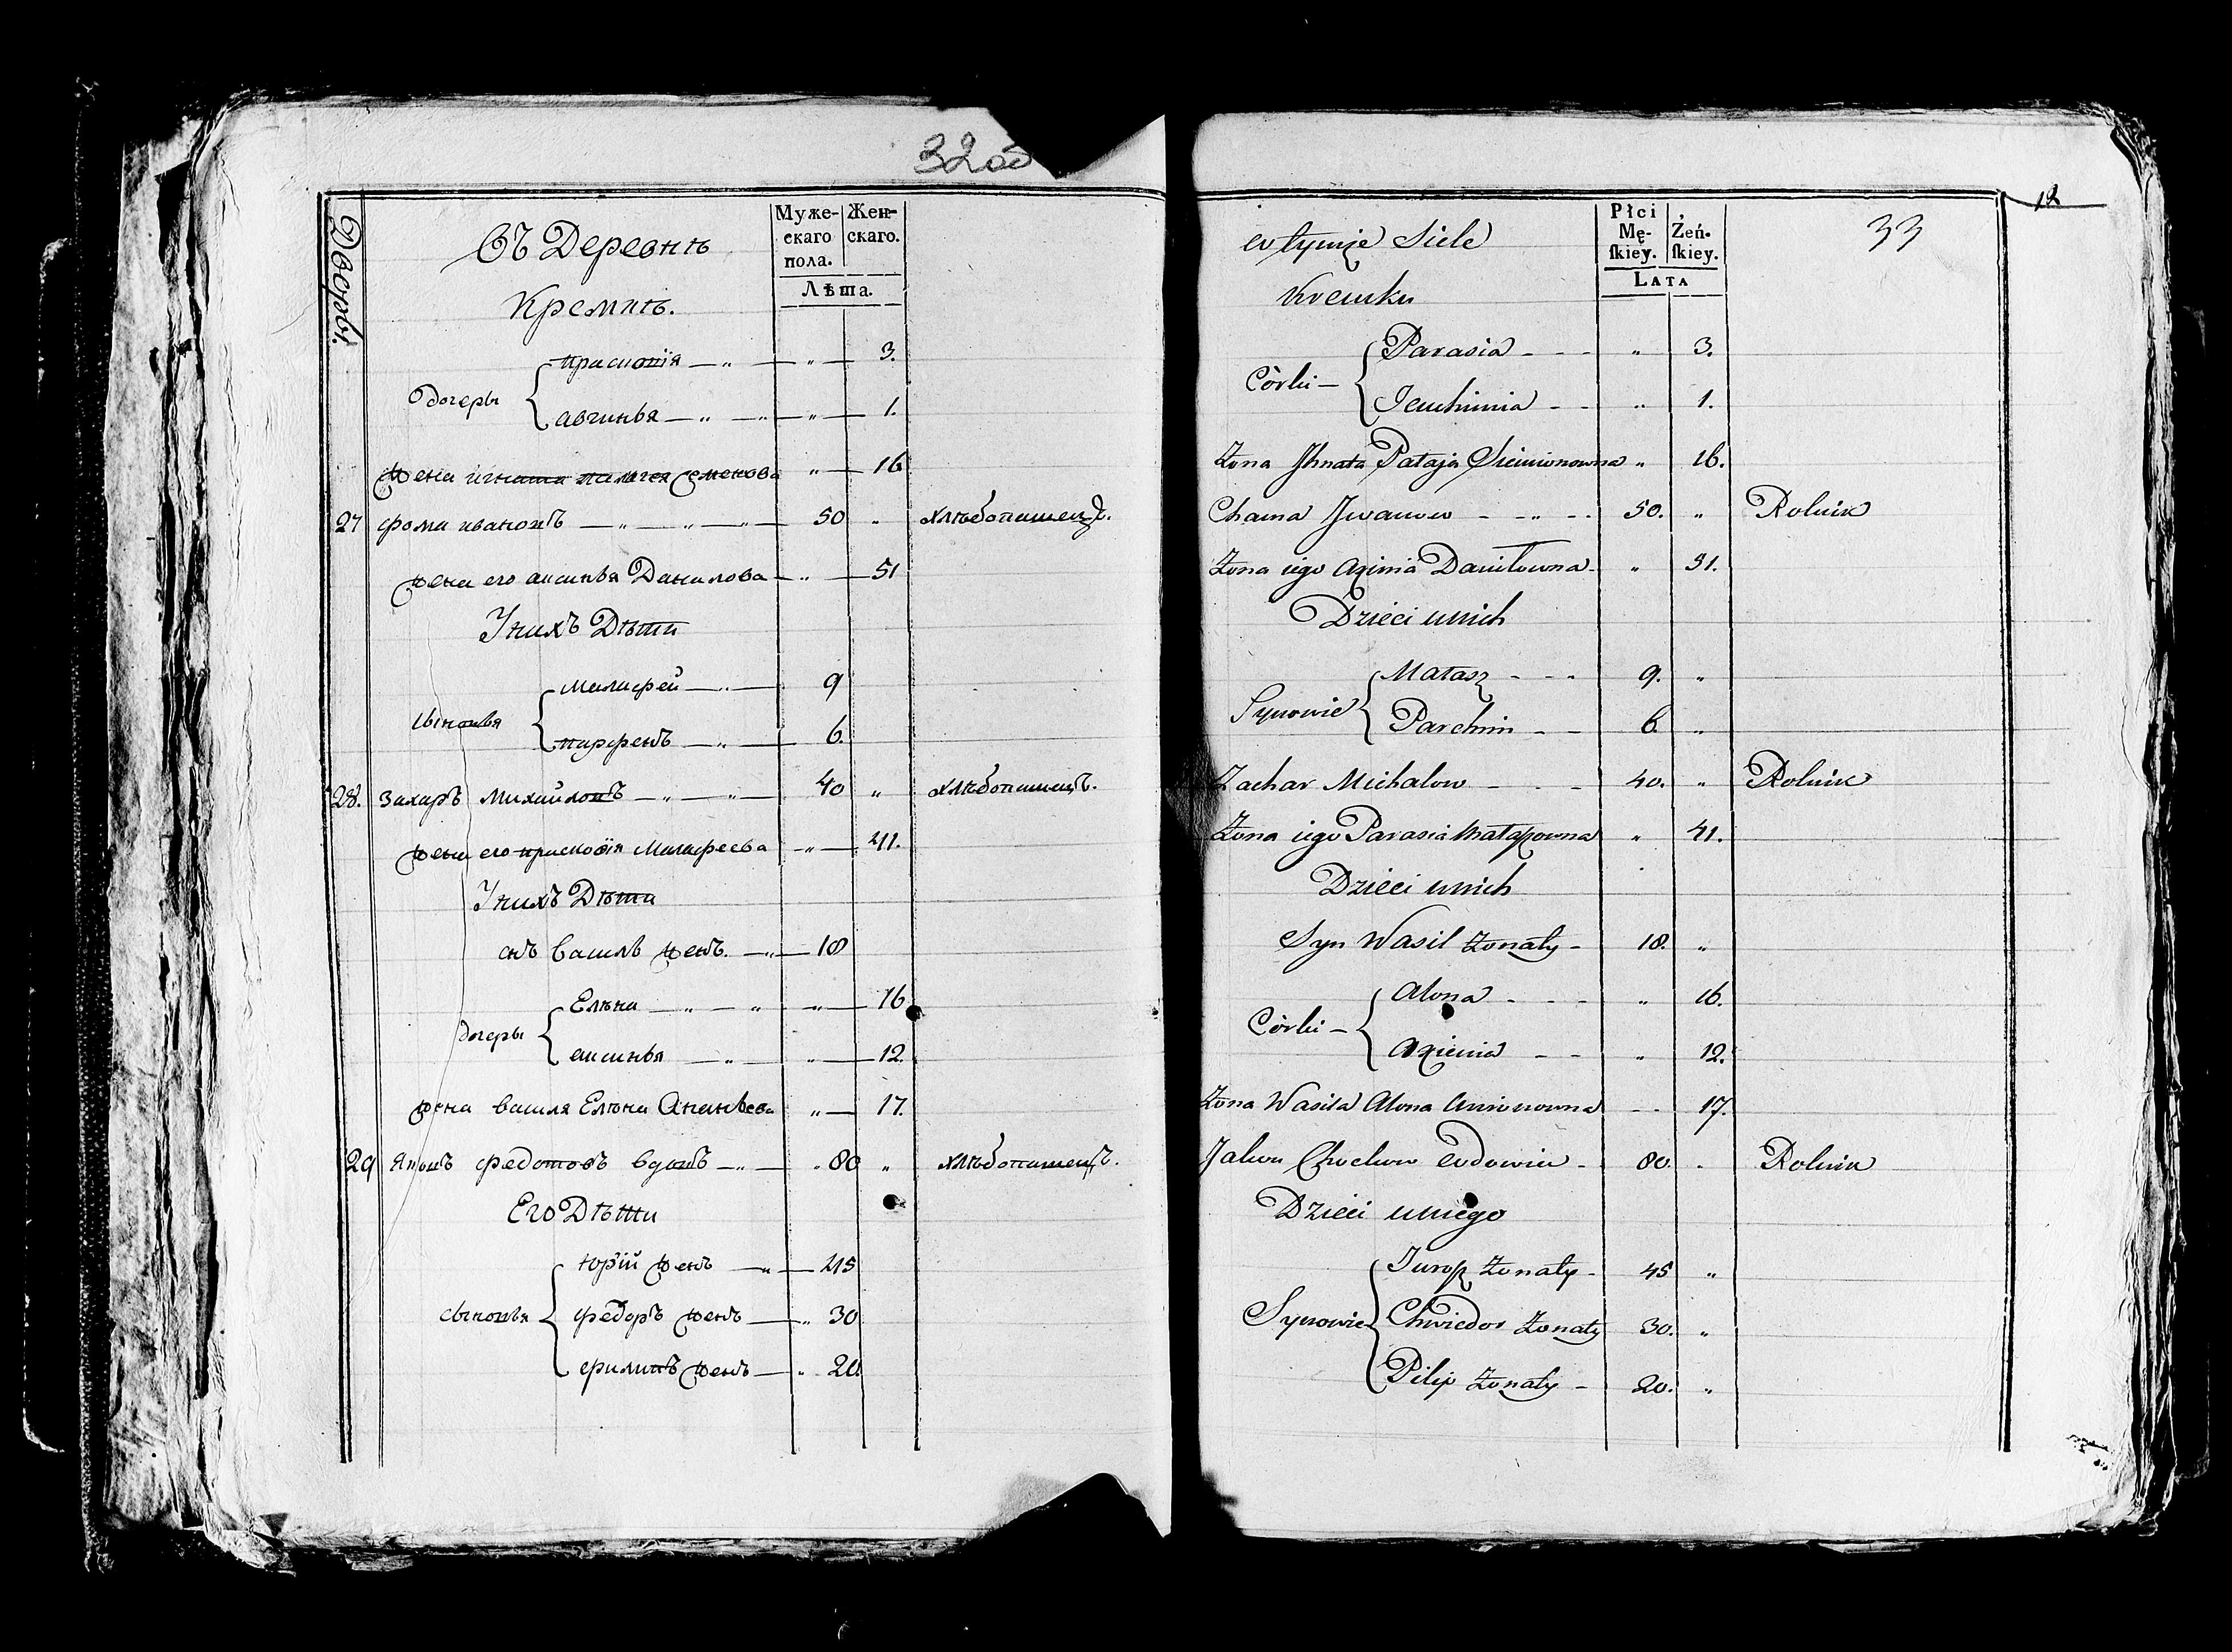 32 об
Дворы.
Въ Деревнѣ
Муже-
скаго
пола.
Жен-
скаго.
Лѣта.
Кремкѣ.
дочеры
прасковія — „ — „ — 3.
авгинья — „ — „ — „ — 1.
жена игната палагея семенова „ — 16
27 фома ивановъ — „ — „ — „ — 50 „ хлѣбопашецъ.
жена его аксинья Данилова — „ — 51
У нихъ Дѣти
сыновья
малафей — „ — 9
парфенъ — „ — 6.
28. захаръ Михайловъ — „ — „ — 40 „ хлѣбопашецъ.
жена его прасковія Малафеева — „ — 41.
У нихъ Дѣти
снъ василь женъ. — „ — 18
дочеры
Елѣна — „ — „ „ — 16
аксинья — „ „ — 12
жена василя Елѣна Ананьева „ — 17.
29 яковъ федотовъ вдовъ — „ — 80 „ хлѣбопашецъ.
Его Дѣти
сыновья
юрій женъ — „ — 45
федоръ женъ — „ 30
филипъ женъ — „ 20.
12
33
w tymże Siele
Płci
Mę-
ſkiey.
Żeń-
ſkiey.
LATA
Kremku
Córki —
Parasia - - - „ 3.
Jeuchimia - - „ 1.
Żona Jhnata Pałaja Siemionowna „ 16.
Chama Jwanow - „ - - 50. „ Rolnik
Żona iego Axinia Daniłowna - „ 51.
Dzieci u nich
Synowie
Matasz - - - 9. „
Parchim - - 6. „
Zachar Michałow - - - 40. „ Rolnik
Żona iego Parasia Mataszowna „ 41.
Dzieci u nich
Syn Wasil żonaty - 18. „
Córki —
Alona - - - „ 16.
Axienia - - „ 12.
Żona Wasila Alona Ananowna - - 17.
Jakow Chwedow wdowiec - 80. „ Rolnik
Dzieci u niego
Synowie
Jurij żonaty - 45 „
Chwiedor żonaty 30. „
Pilip żonaty - 20. „